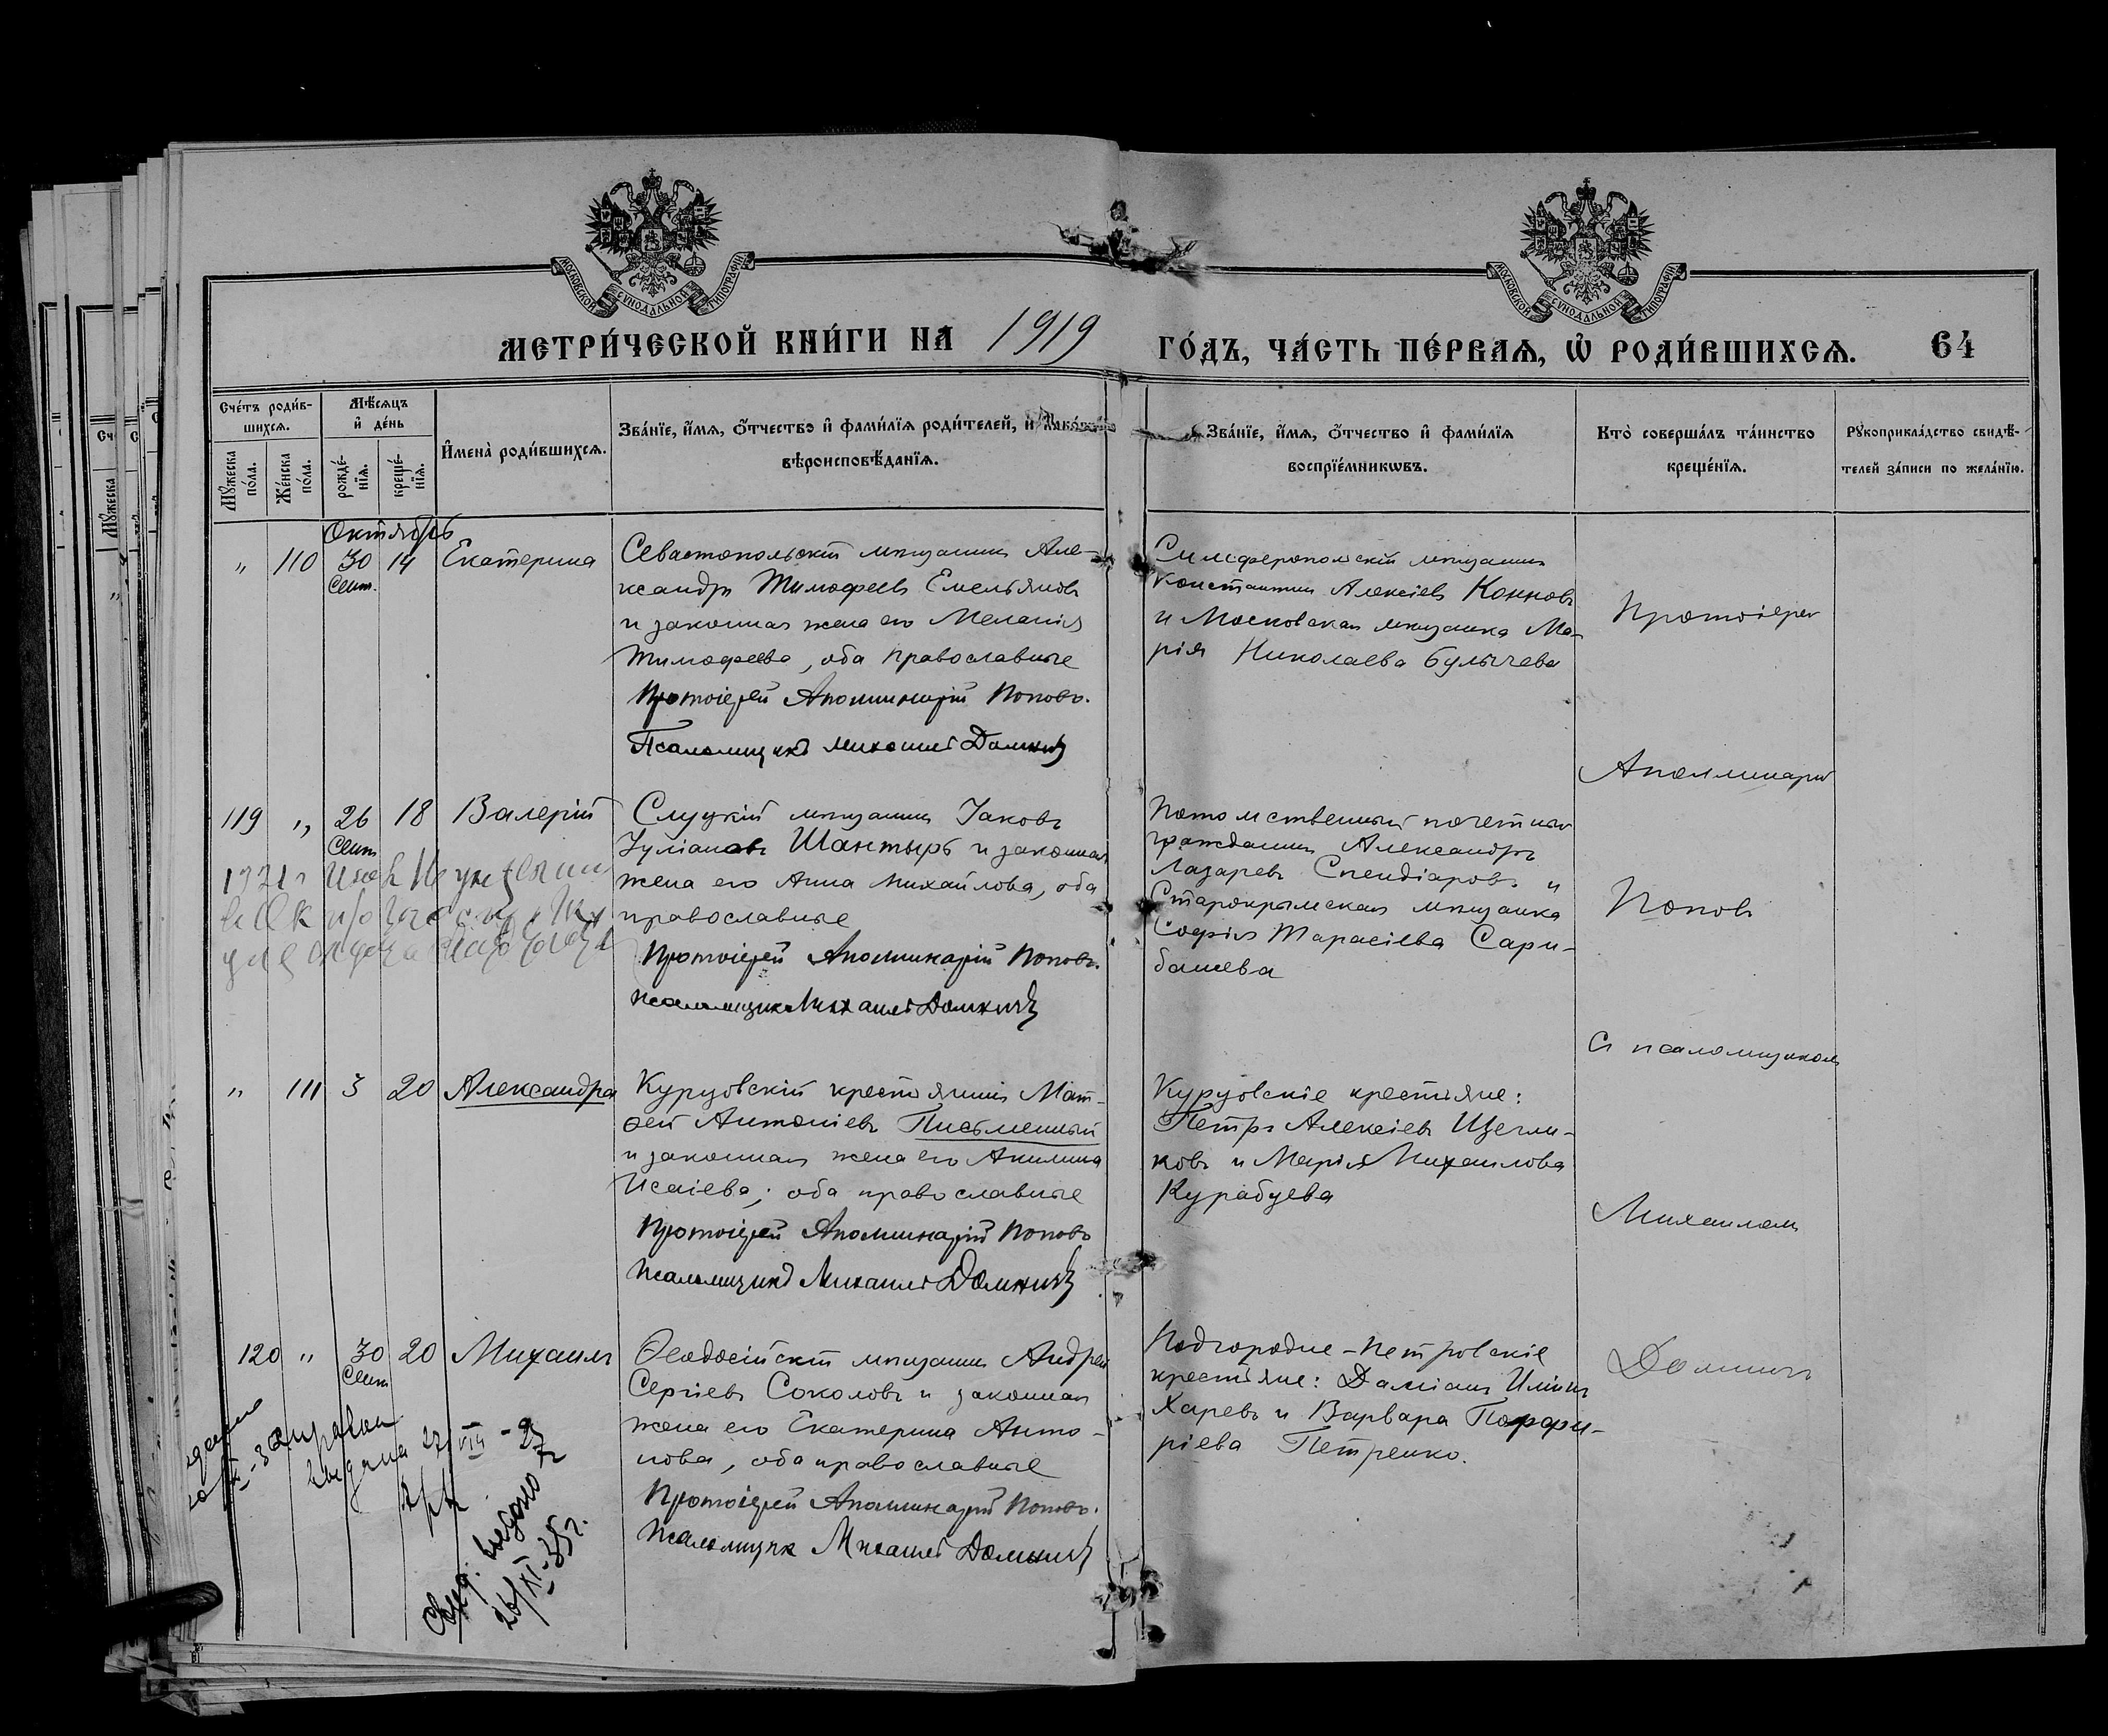 МОСКОВСКОЙ СѴНОДАЛЬНОЙ ТИПОГРАФІИ
МОСКОВСКОЙ СѴНОДАЛЬНОЙ ТИПОГРАФІИ
МЕТРИ́ЧЕСКОЙ КНИ́ГИ НА 1919 ГО́ДЪ, ЧА́СТЬ ПЕ́РВАѦ, Ѡ҆ РОДИ́ВШИХСѦ. 64
Сче́тъ роди́в-
шихсѧ.
Мꙋ́жеска по́ла.
Же́нска по́ла.
Мѣ́сѧцъ
и҆ де́нь
рожде́-
нїѧ.
креще́-
нїѧ.
И҆мена̀ роди́вшихсѧ.
Зва́нїе, и҆́мѧ, ѻ҆́тчество и҆ фами́лїѧ роди́телей, и҆
вѣроисповѣ́данїѧ.
Зва́нїе, и҆́мѧ, ѻ҆́тчество и҆ фами́лїѧ
воспрїе́мникѡвъ.
Кто̀ соверша́лъ та́инство
креще́нїѧ.
Рꙋкоприкла́дство свидѣ́-
телей за́писи по жела́нїю.
Октябрь
„ 110 30 14 Екатерина
Сент.
Севастопольскій мѣщанинъ Але-
ксандръ Тимофеевъ Емельяновъ
и законная жена его Меланія
Тимофеева, оба православные
Протоіерей Аполлинарій Поповъ.
Псаломщикъ Михаилъ Домничъ
Симферопольскій мѣщанинъ
Константинъ Алексіевъ Конновъ
и Московская мѣщанка Ма-
рія Николаева Булычева
Протоіерей
Аполлинарій
119 „ 26 18 Валерій
Сент
Слуцкій мѣщанинъ Іаковъ
Іуліановъ Шантырь и законная
жена его Анна Михайлова, оба
православные
Протоіерей Аполлинарій Поповъ.
Псаломщикъ Михаилъ Домничъ
Потомственный почетный
гражданинъ Александръ
Лазаревъ Спендіаровъ и
Старокрымская мѣщанка
Софія Тарасіева Сари-
башева
Поповъ
Съ псаломщикомъ
„ 111 3 20 Александра
Курцовскій крестьянинъ Мат-
ѳей Антоніевъ Письменный
и законная жена его Акилина
Исаіева; оба православные
Протоіерей Аполлинарій Поповъ
Псаломщикъ Михаилъ Домничъ
Курцовскіе крестьяне:
Петръ Алексіевъ Щегли-
ковъ и Марія Михаилова
Курабцева
Михаиломъ
120 „ 30 20 Михаилъ
Сент
Ѳеодосійскій мѣщанинъ Андрей
Сергіевъ Соколовъ и законная
жена его Екатерина Анто-
нова, оба православные
Протоіерей Аполлинарій Поповъ.
Псаломщикъ Михаилъ Домничъ
Подгородне-Петровскіе
крестьяне: Даміанъ Илiинъ
Харевъ и Варвара Порфи-
ріева Петренко.
Домничъ
выдана 27/VIII-27
Свид. выдано
26/XI-35г.